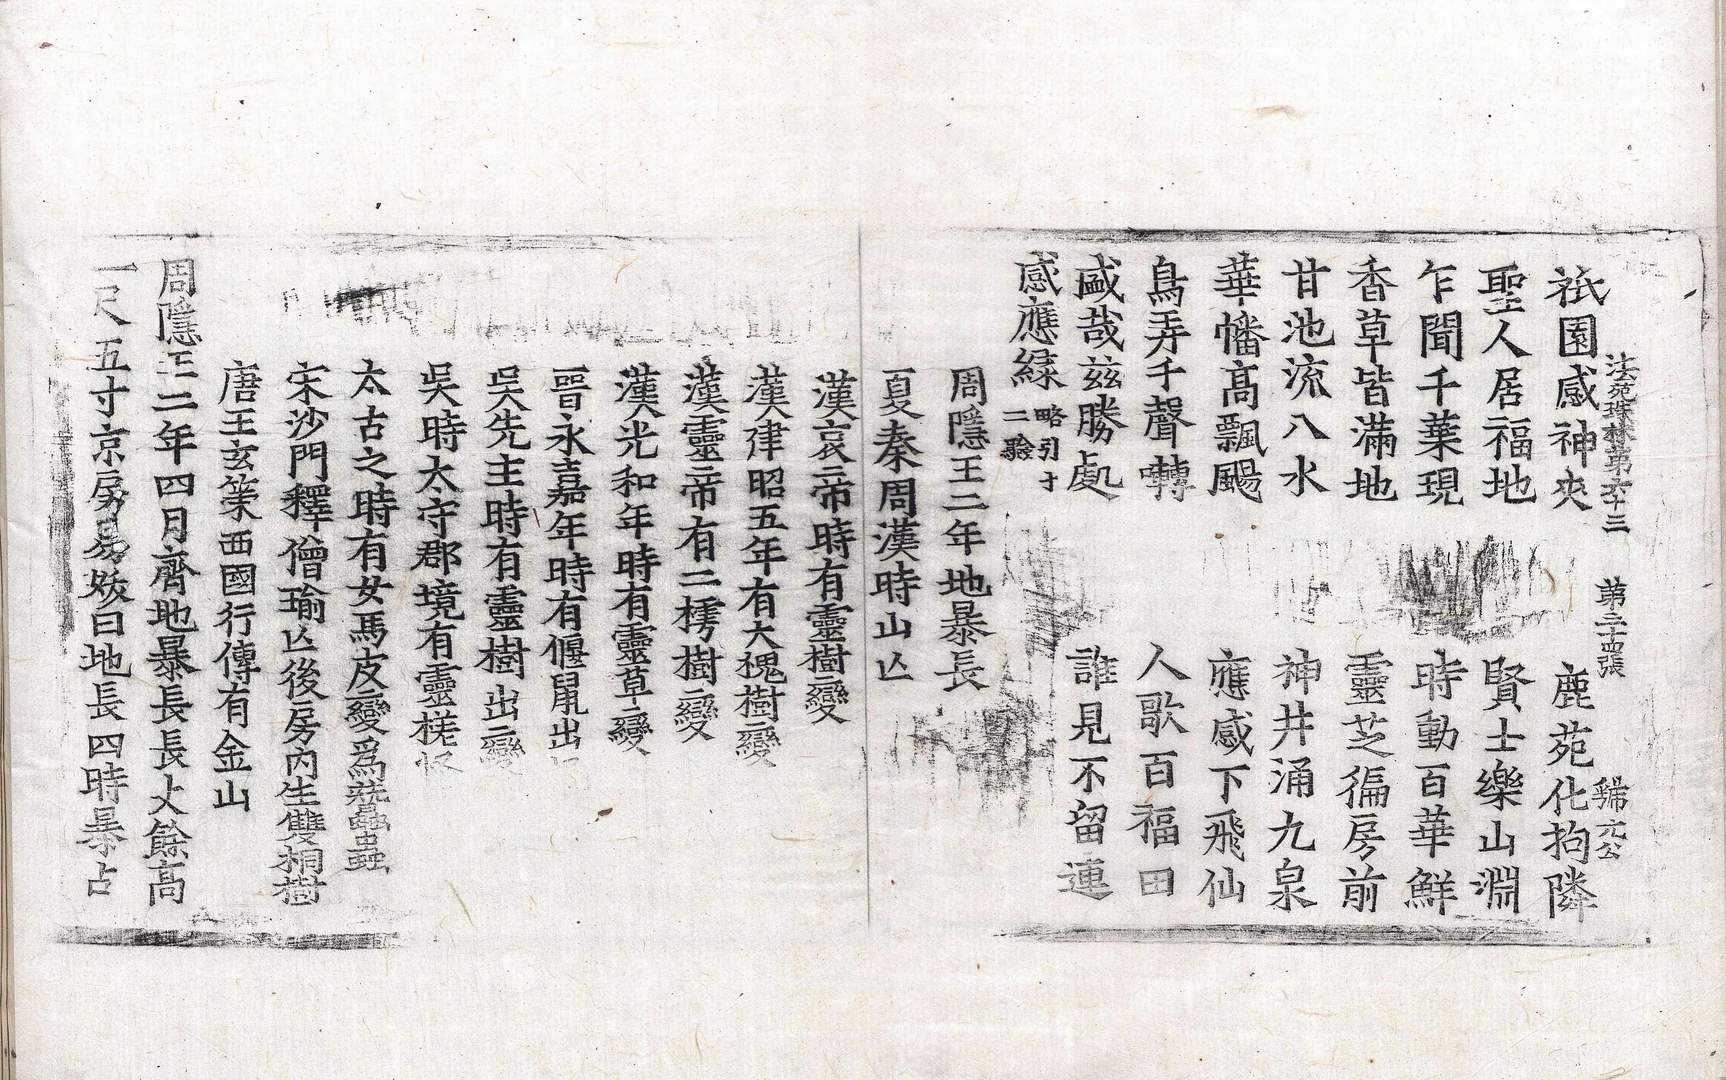 法苑珠林第六十三 第三十四張 歸 元公
祇園感神夾 鹿苑化拘隣
聖人居福地 賢士樂山淵
乍聞千葉現 時動百華鮮
香草皆滿地 靈芝徧房前
甘池流八水 神井涌九泉
華幡高飄颺 應感下飛仙
鳥弄千聲囀 人歌百福田
盛哉茲勝處 誰見不留連
感應緣 略引十二驗
周隱王二年地暴長
夏秦周漢時山亾
漢哀帝時有靈樹變
漢建昭五年有大槐樹變
漢靈帝有二樗樹變
漢光和年時有靈草變
晉永嘉年時有偃鼠出
吳先主時有靈樹出變
吳時太守郡境有靈槎怪
太古之時有女馬皮變爲蠶蟲
宋沙門釋僧瑜亾後房內生雙桐樹
唐王玄策西國行傳有金山
周隱王二年四月齊地暴長長丈餘高
一尺五寸京房易妖曰地長四時暴占